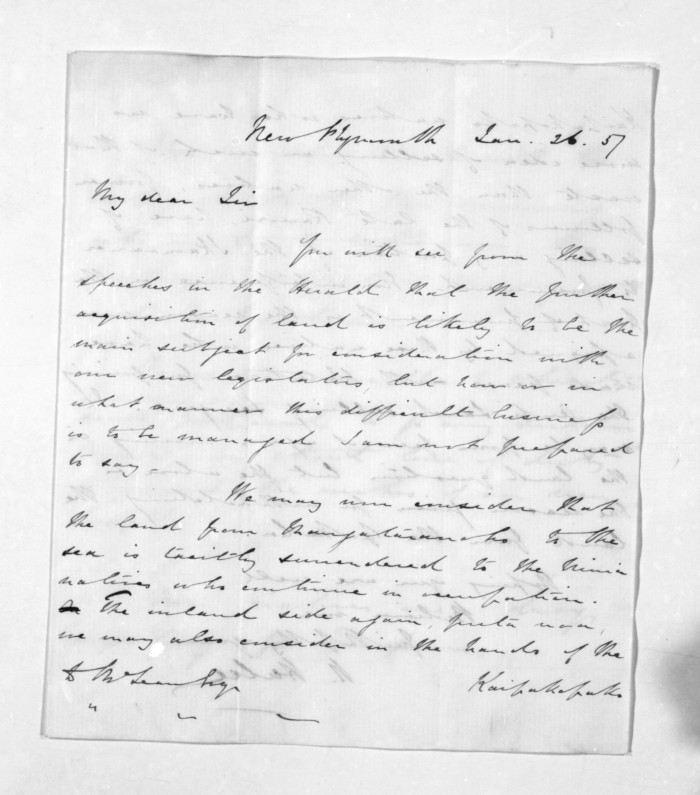 New Plymouth Jan. 26. 57
My dear Sir
You will see from the
speeches in the Herald that the further
acquisition of land is likely to be the
main subject for consideration with
our new legislators, but how or in
what manner this difficult business
is to be managed I am not prepared
to say.
We may now consider that
the land from to the
sea is tacitly surrendered to the
natives who continue in occupation.
The inland side again, now,
we may also consider in the hands of the
D McLean Esqr Kaipakopako
" " "